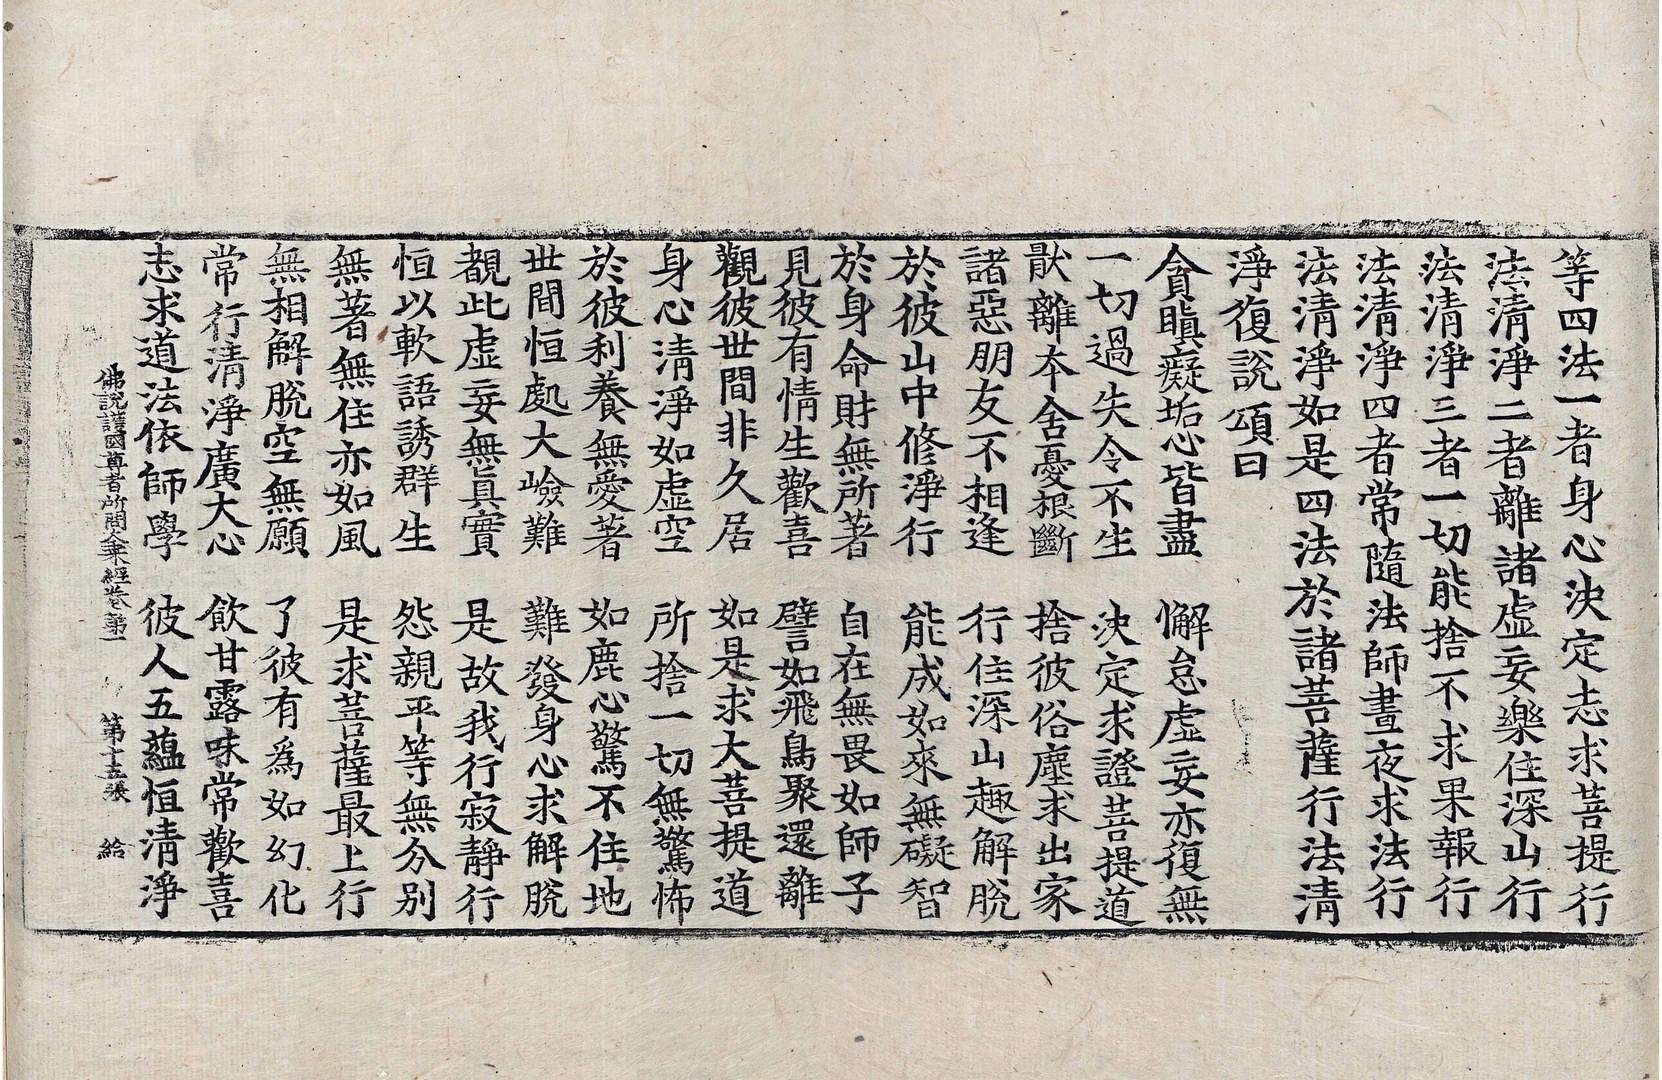 等四法一者身心決定志求菩提行
法清淨二者離諸虛妄樂住深山行
法清淨三者一切能捨不求果報行
法清淨四者常隨法師晝夜求法行
法清淨如是四法於諸菩薩行法清
淨復說頌曰
貪瞋癡垢心皆盡　懈怠虛妄亦復無
一切過失令不生　決定求證菩提道
猒離本舍憂根斷　捨彼俗塵求出家
諸惡朋友不相逢　行住深山趣解脫
於彼山中修淨行　能成如來無礙智
於身命財無所著　自在無畏如師子
見彼有情生歡喜　譬如飛鳥聚還離
觀彼世間非久居　如是求大菩提道
身心清淨如虛空　所捨一切無驚怖
於彼利養無愛著　如鹿心驚不住地
世間恒處大嶮難　難發身心求解脫
覩此虛妄無真實　是故我行寂靜行
恒以軟語誘群生　怨親平等無分別
無著無住亦如風　是求菩薩最上行
無相解脫空無願　了彼有為如幻化
常行清淨廣大心　飲甘露味常歡喜
志求道法依師學　彼人五蘊恒清淨
佛說護國尊者所問大乘經卷第一　第十五張　給